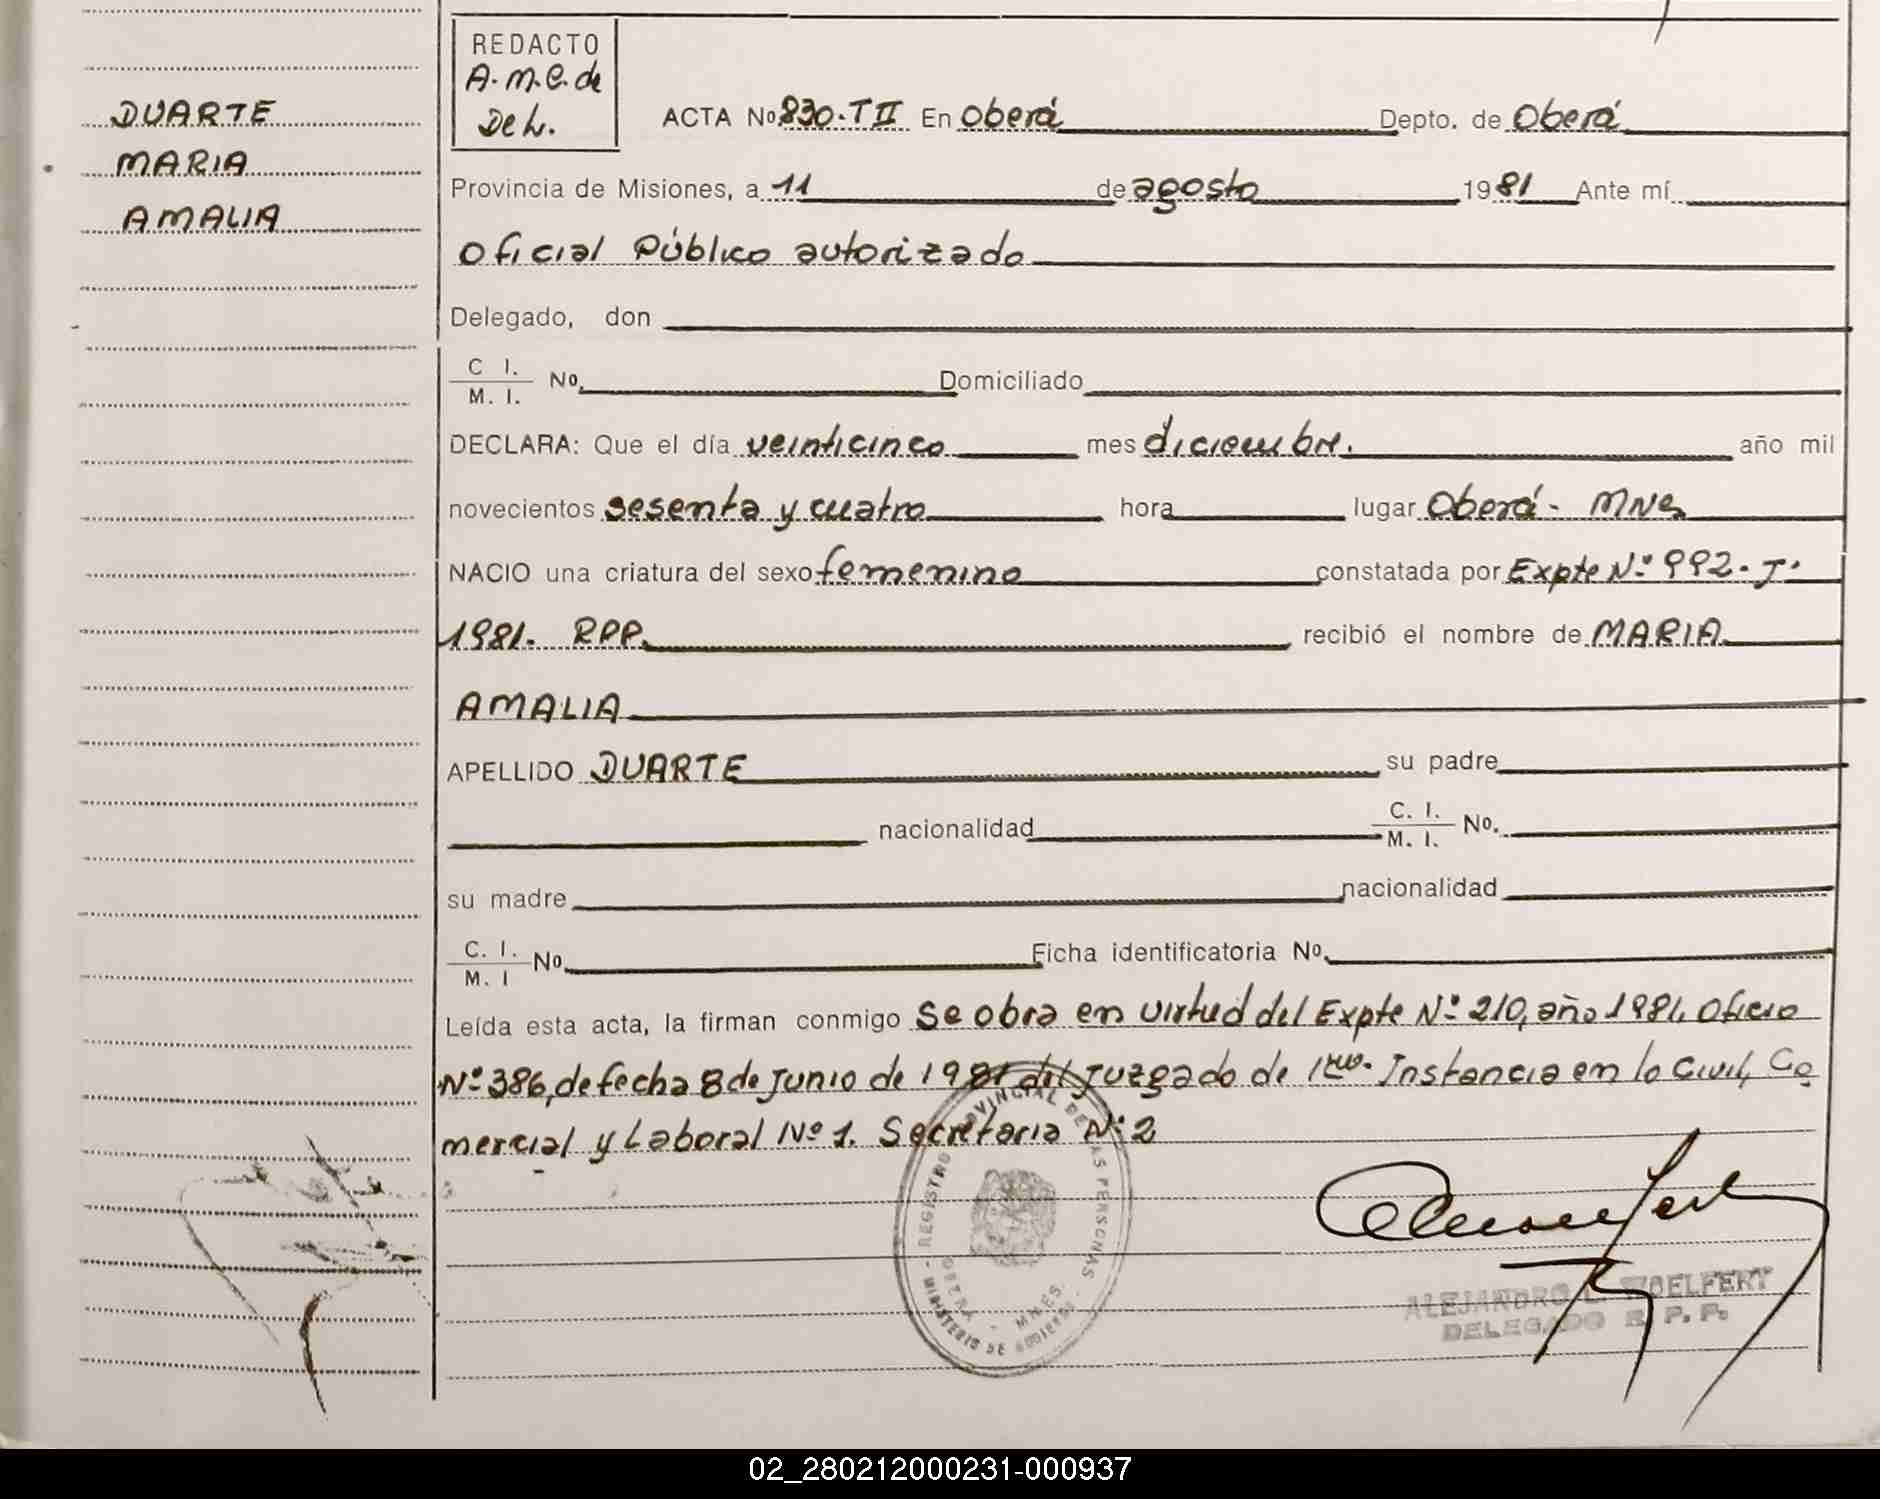 DUARTE
MARIA
AMALIA
REDACTO
A.M.C. de
De L.
ACTA No 830-T II En Oberá Depto. de Oberá
Provincia de Misiones, a 11 de agosto 1981 Ante mí
Oficial Público autorizado
Delegado, don
C. I.
M. I. No. Domiciliado
DECLARA: Que el día veinticinco mes diciembre. año mil
novecientos sesenta y cuatro hora lugar Oberá - MNes
NACIO una criatura del sexo femenino constatada por Expte Nº 992-J-
1981. RPP. recibió el nombre de MARIA
AMALIA
APELLIDO DUARTE su padre
nacionalidad C. I.
M. I. No.
su madre nacionalidad
C. I.
M. I No. Ficha identificatoria No.
Leída esta acta, la firman conmigo Se obra en virtud del Expte Nº 210, año 1981, Oficio
Nº 386, de fecha 8 de Junio de 1981 del Juzgado de 1era. Instancia en lo Civil, Co
mercial y Laboral Nº 1. Secretaria Nº 2
REGISTRO PROVINCIAL DE LAS PERSONAS
OBERA - MNES.
MINISTERIO DE GOBIERNO
ALEJANDRO
DELEGADO R. P. P.
02_280212000231-000937